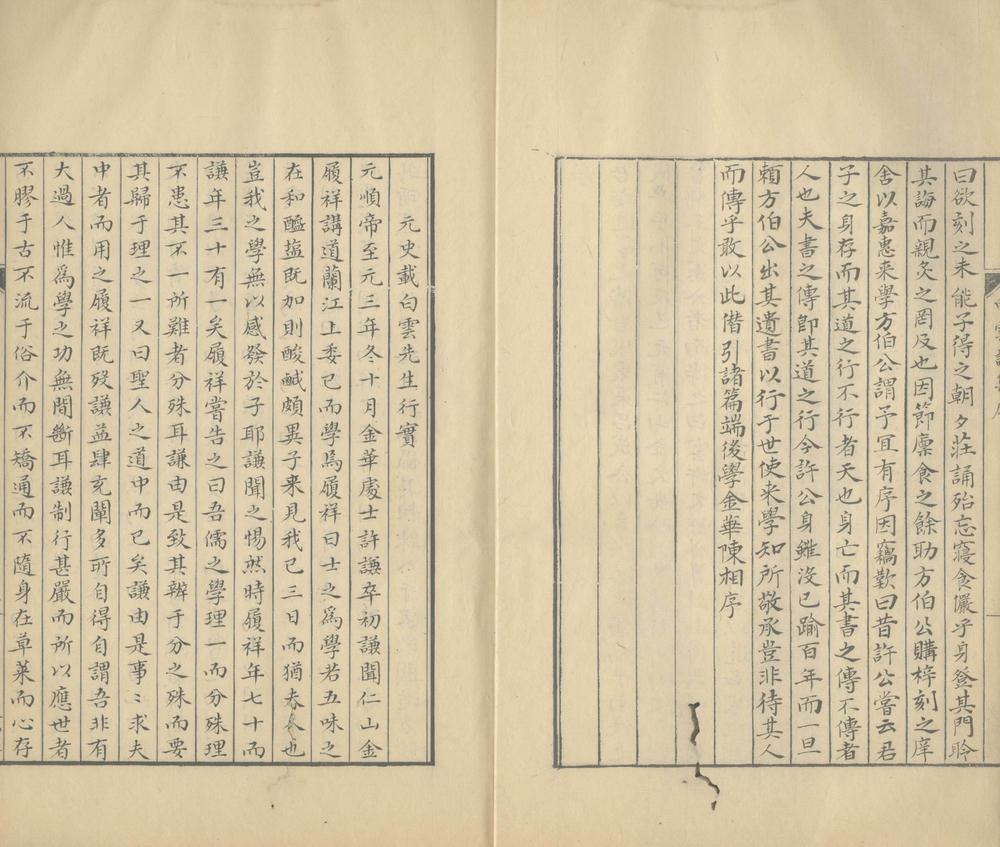 曰欲刻之未能子得之朝夕莊誦殆忘寢食儼乎身登其門聆
其誨而親炙之罔及也因節廩食之餘助方伯公購梓刻之庠
舍以嘉惠来學方伯公謂子宜有序因竊歎曰昔許公嘗云君
子之身存而其道之行不行者天也身亡而其書之傳不傳者
人也夫書之傳即其道之行今許公身雖沒已踰百年而一旦
賴方伯公出其遺書以行于世使来學知所敬承豈非待其人
而傳乎敢以此僭引諸篇端後學金華陳相序
元史載白雲先生行實
元順帝至元三年冬十月金華處士許謙卒初謙聞仁山金
履祥講道蘭江上委己而學焉履祥曰士之為學若五味之
在和醯塩既加則酸鹹頗異子来見我已三日而猶夫人也
豈我之學無以感發於子耶謙聞之惕然時履祥年七十而
謙年三十有一矣履祥嘗告之曰吾儒之學理一而分殊理
不患其不一所難者分殊耳謙由是致其辨于分之殊而要
其歸于理之一又曰聖人之道中而已矣謙由是事〻求夫
中者而用之履祥既歿謙益肆充闡多所自得自謂吾非有
大過人惟為學之功無間斷耳謙制行甚嚴而所以應世者
不膠于古不流于俗介而不矯通而不隨身在草萊而心存